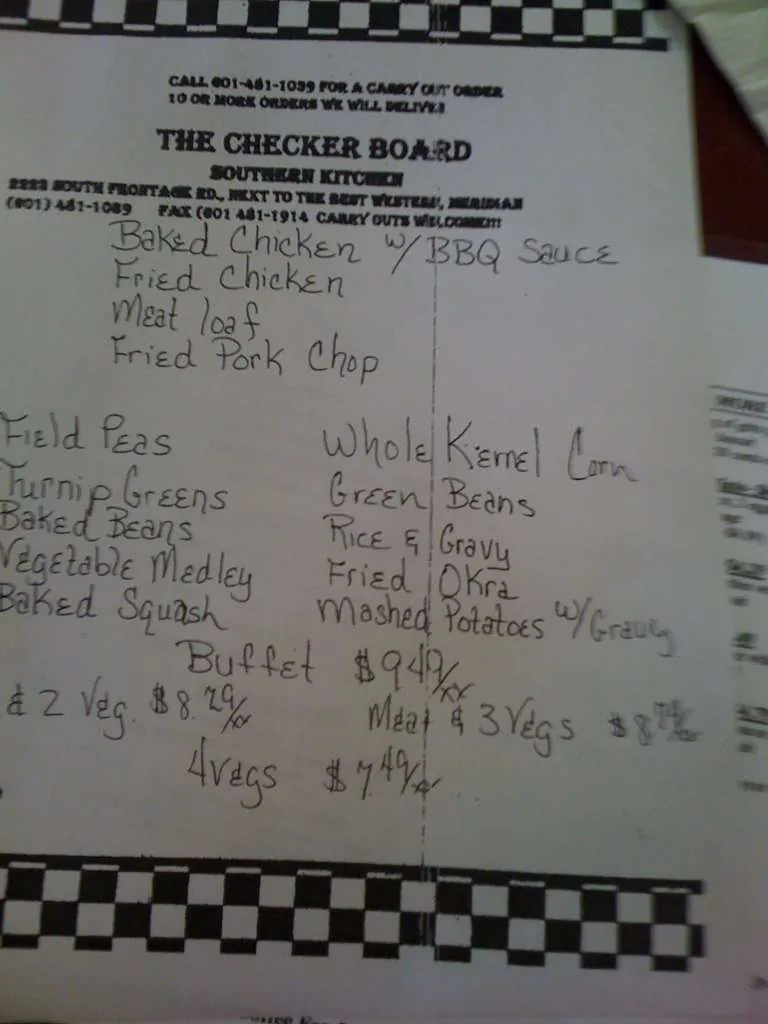 CALL 601-481-1089 FOR A CARRY OUT ORDER
10 OR MORE ORDERS WE WILL DELIVER
THE CHECKER BOARD
SOUTHERN KITCHEN
2223 SOUTH FRONTAGE RD., NEXT TO THE BEST WESTERN, MERIDIAN
(601) 481-1089 FAX (601 481-1914 CARRY OUTS WELCOME!!!
Baked Chicken w/ BBQ Sauce
Fried Chicken
Meat loaf
Fried Pork Chop
Field Peas Whole Kernel Corn
Turnip Greens Green Beans
Baked Beans Rice & Gravy
Vegetable Medley Fried Okra
Baked Squash Mashed Potatoes w/ Gravy
Buffet $9.49
& 2 Veg. $8.29 Meat & 3 Vegs $8
4 Vegs $7.49